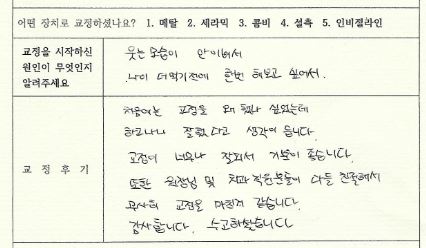 어떤 장치로 교정하셨나요? 1. 메탈 2. 세라믹 3. 콤비 4. 설측 5. 인비절라인
교정을 시작하신
원인이 무엇인지
알려주세요
웃는 모습이 안이뻐서
나이 더먹기전에 한번 해보고 싶어서.
교 정 후 기
처음에는 교정을 왜 했나 싶었는데
하고나니 잘했다고 생각이 듭니다.
교정이 너무나 잘되서 기분이 좋습니다.
또한 원장님 및 치과 직원분들이 다들 친절해서
무사히 교정을 마친거 같습니다.
감사합니다. 수고하셨습니다